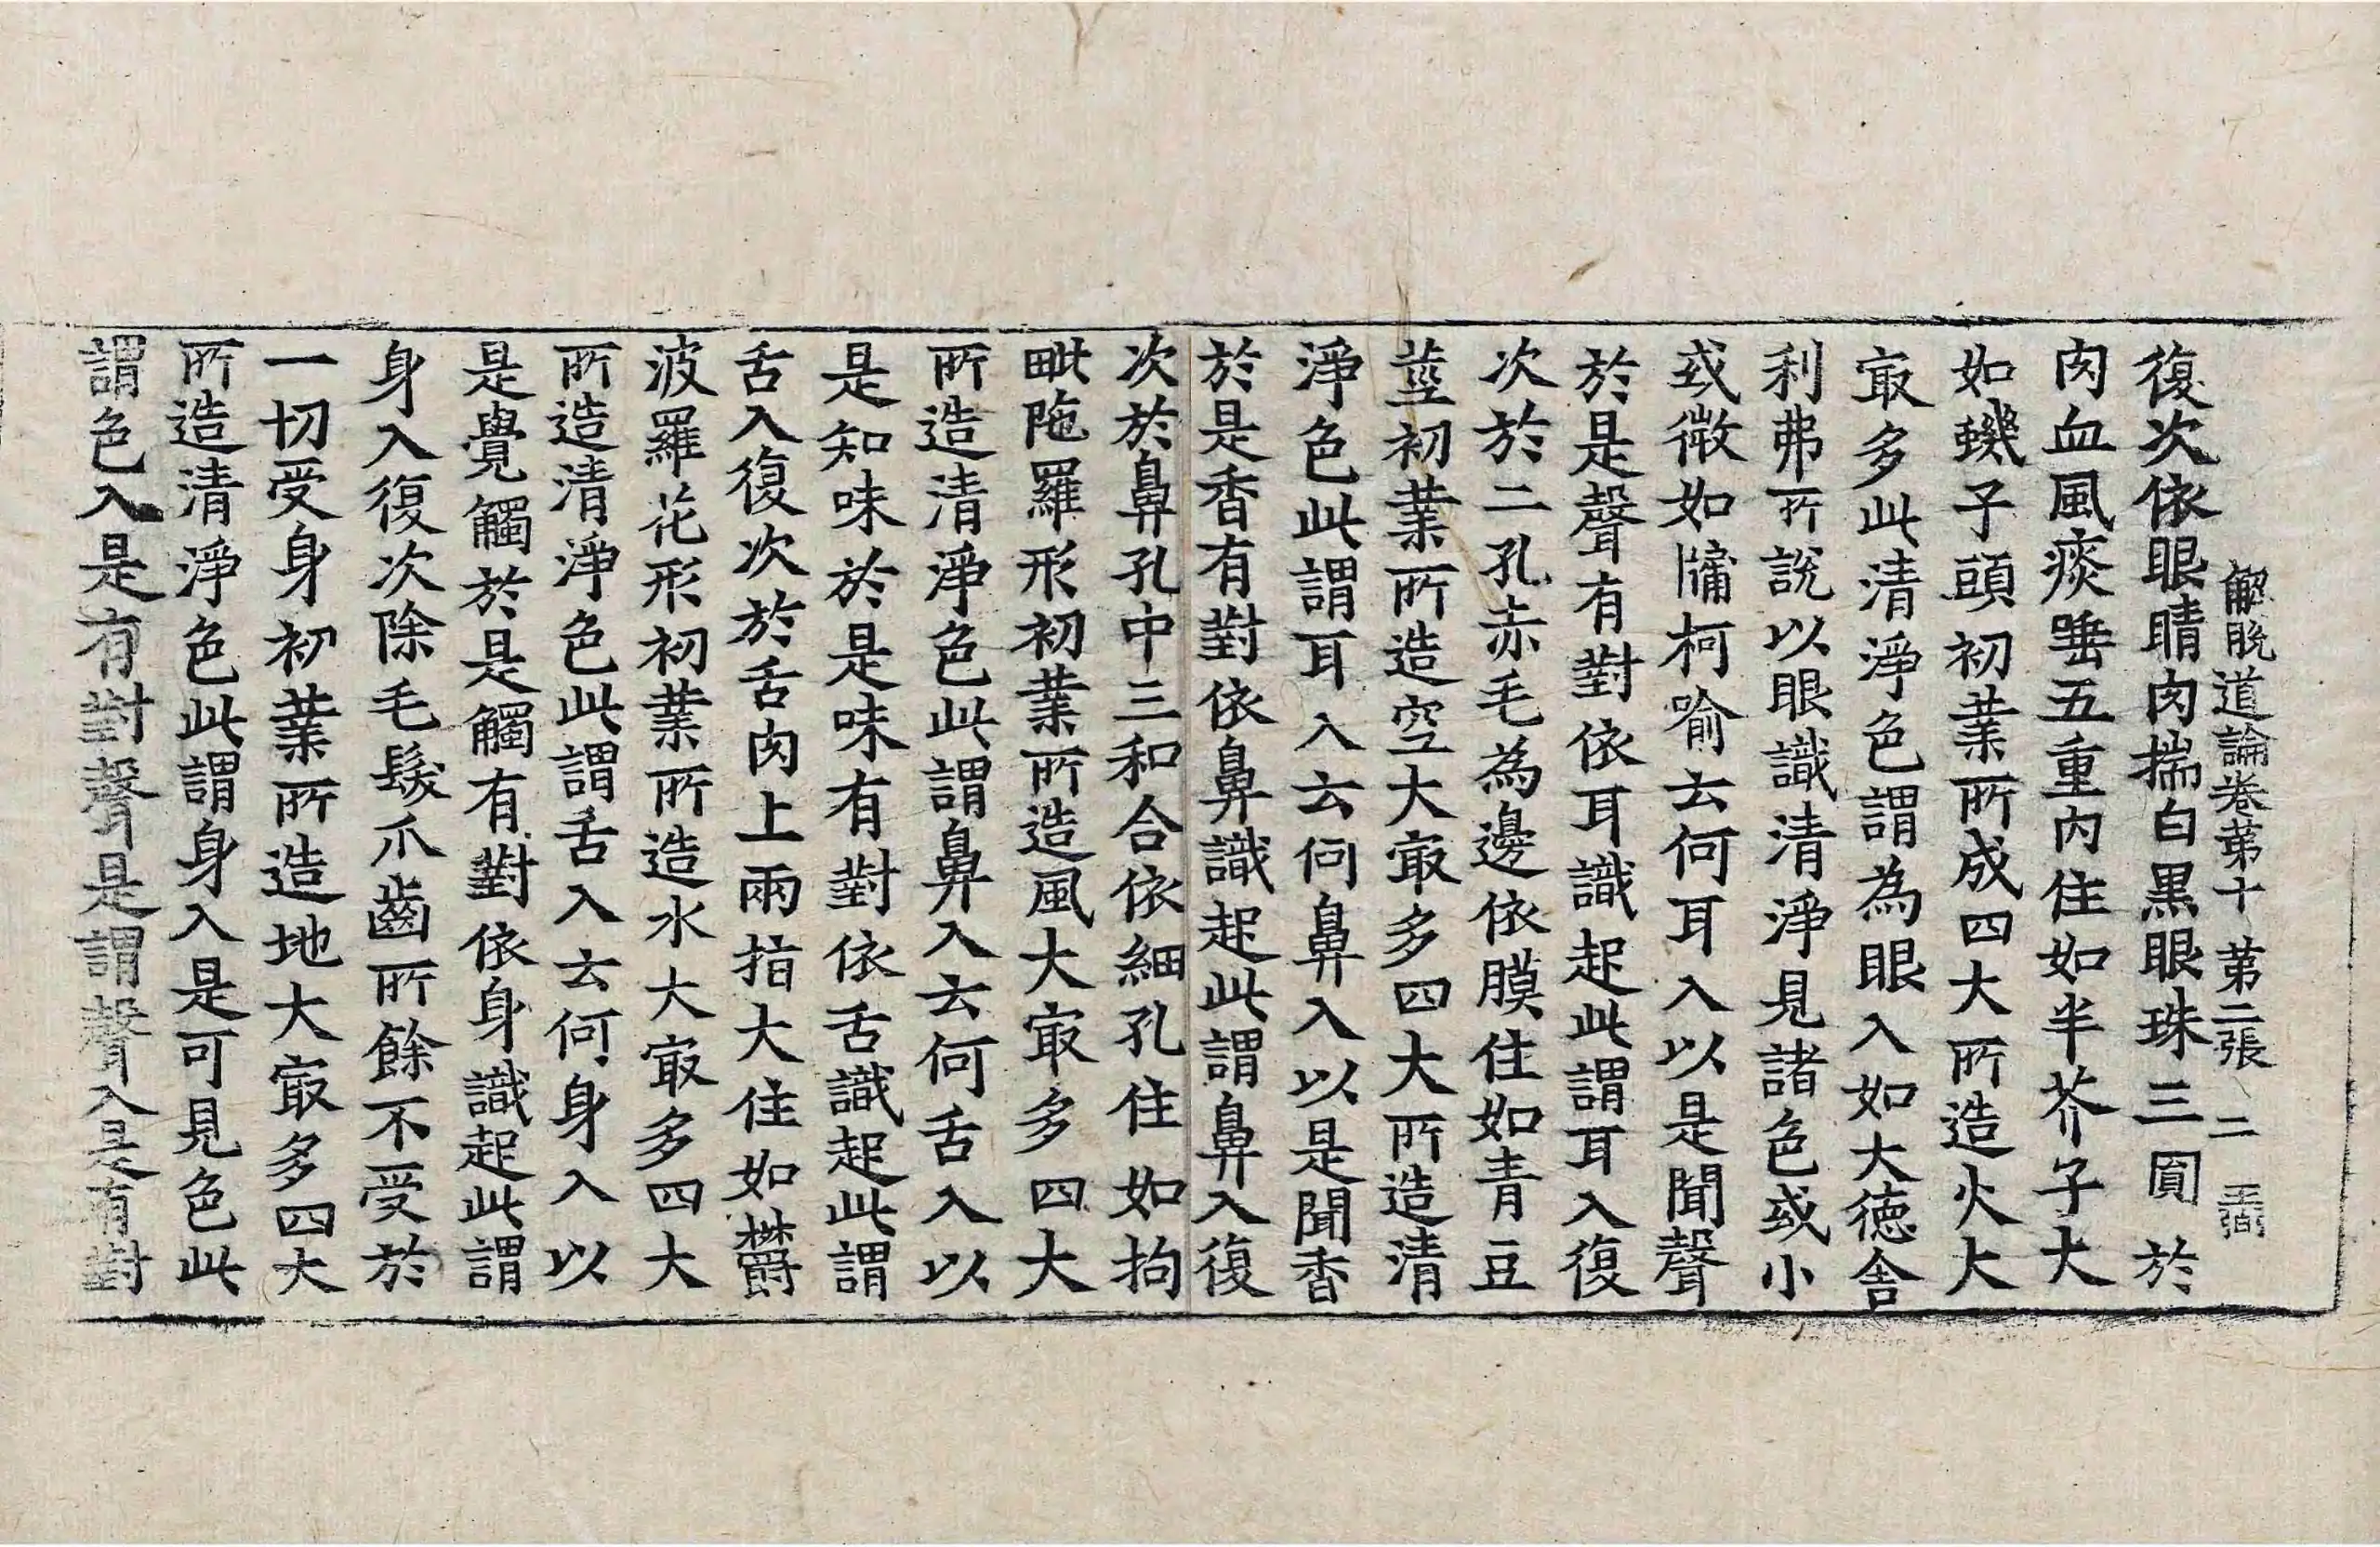 解脫道論卷第十 第二張 二
復次依眼睛肉揣白黑眼珠三圓於
肉血風痰唾五重內住如半芥子大
如蟣子頭初業所成四大所造火大
㝡多此清淨色謂為眼入如大德舍
利弗所說以眼識清淨見諸色或小
或微如牗柯喻云何耳入以是聞聲
於是聲有對依耳識起此謂耳入復
次於二孔赤毛為邊依膜住如青豆
莖初業所造空大㝡多四大所造清
淨色此謂耳入云何鼻入以是聞香
於是香有對依鼻識起此謂鼻入復
次於鼻孔中三和合依細孔住如拘
毗陁羅形初業所造風大㝡多四大
所造清淨色此謂鼻入云何舌入以
是知味於是味有對依舌識起此謂
舌入復次於舌肉上兩指大住如欝
波羅花形初業所造水大㝡多四大
所造清淨色此謂舌入云何身入以
是覺觸於是觸有對依身識起此謂
身入復次除毛髮爪齒所餘不受於
一切受身初業所造地大㝡多四大
所造清淨色此謂身入是可見色此
謂色入是有對聲是謂聲入是有對